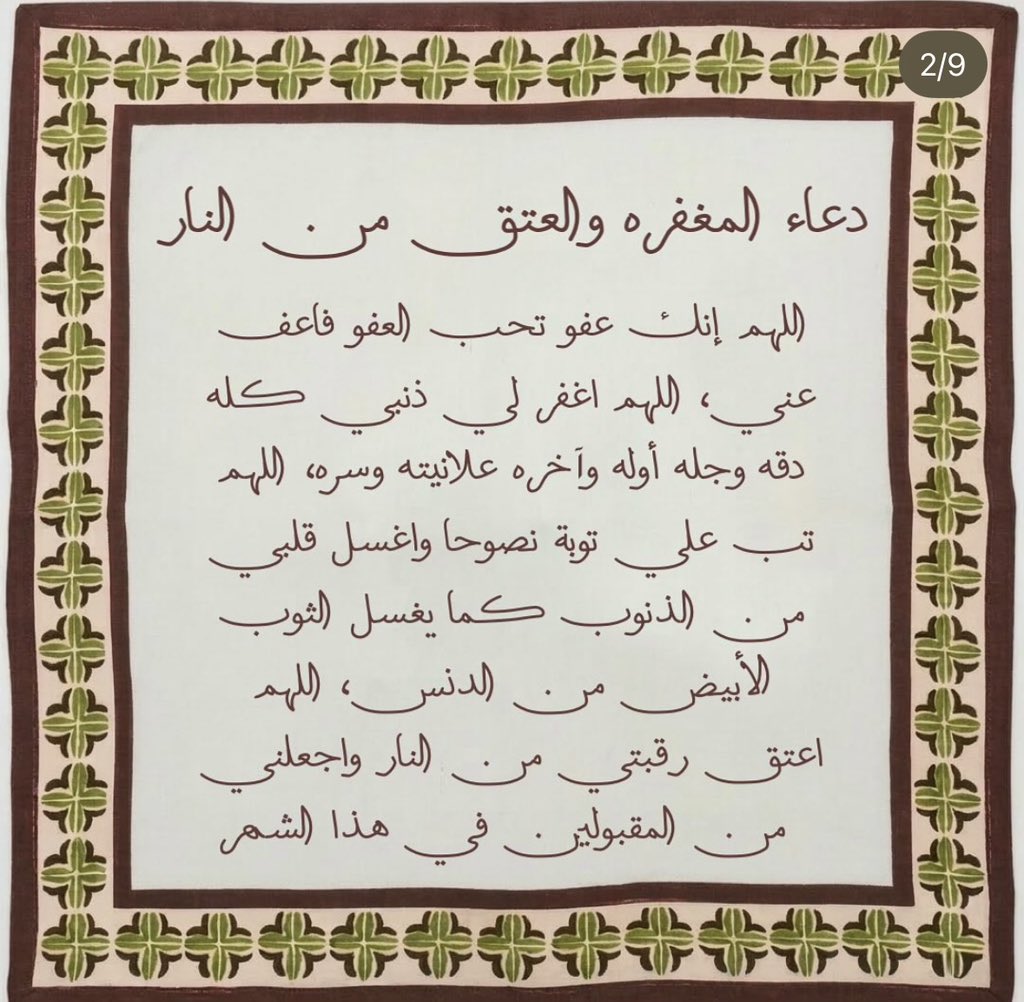 2/9
دعاء المغفره والعتق من النار
اللهم إنك عفو تحب العفو فاعف
عني، اللهم اغفر لي ذنبي كله
دقه وجله أوله وآخره علانيته وسره، اللهم
تب علي توبة نصوحا واغسل قلبي
من الذنوب كما يغسل الثوب
الأبيض من الدنس، اللهم
اعتق رقبتي من النار واجعلني
من المقبولين في هذا الشهر